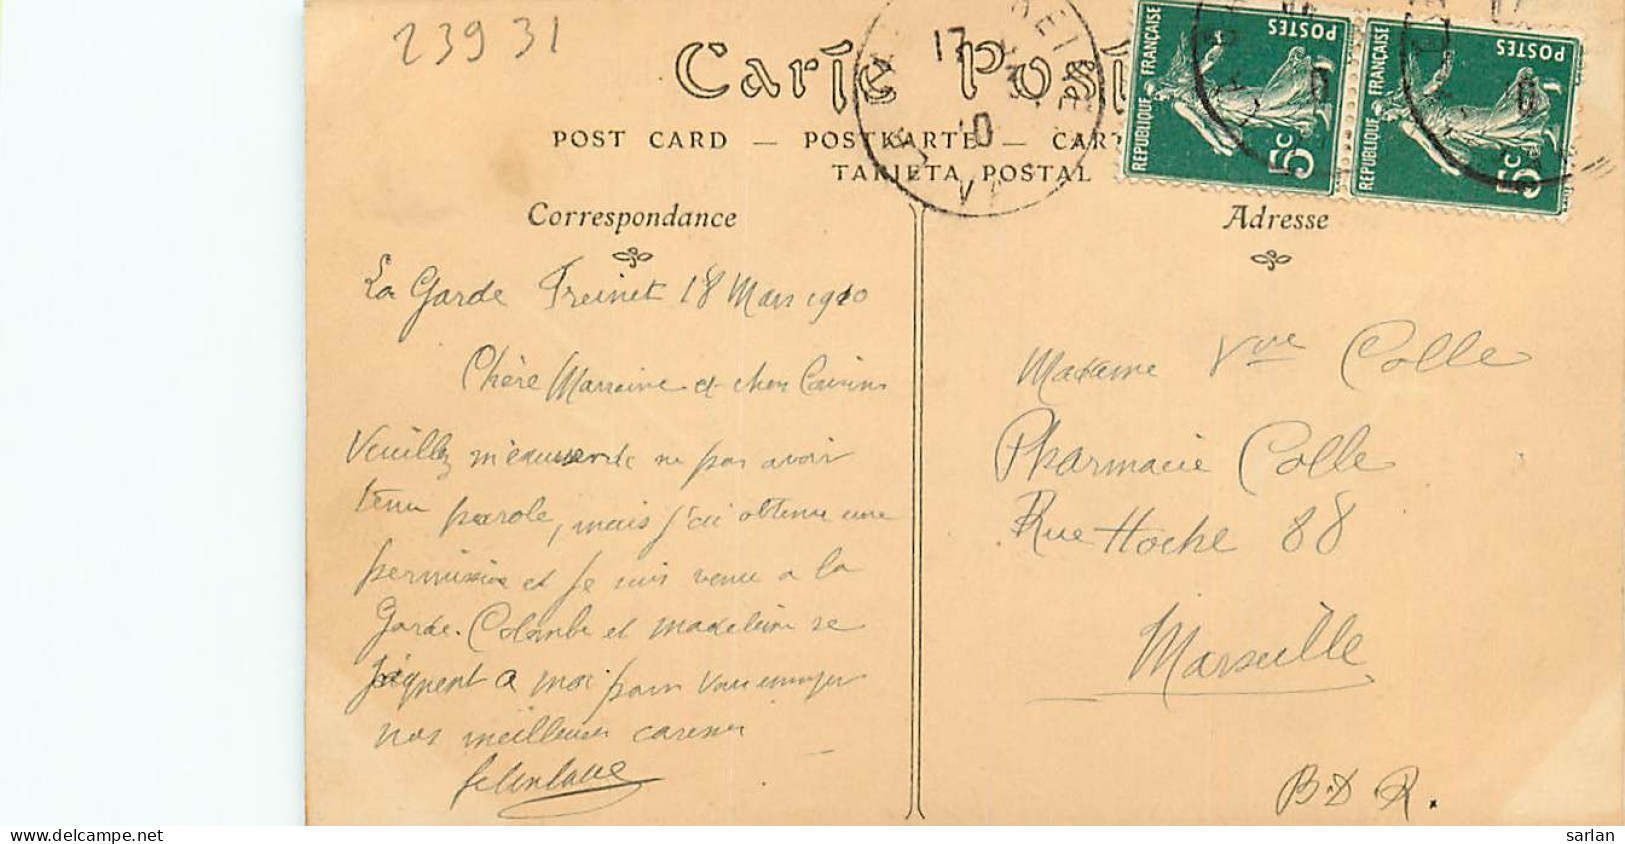 23931
Carte Post
POST CARD — POSTKARTE — CART
TARJETA POSTAL
17
10
REPUBLIQUE FRANÇAISE
POSTES
5c
REPUBLIQUE FRANÇAISE
POSTES
5c
Correspondance
La Garde Freinet 18 Mars 1910
Chère Marraine et chers Cousins
Veuillez m'excuser de ne pas avoir
tenu parole, mais j'ai obtenu une
permission et je suis venu a la
Garde. Colombe et Madeleine se
joignent a moi pour vous envoyer
nos meilleures caresses
Adresse
Madame Vve Colle
Pharmacie Colle
Rue Hoche 88
Marseille
B.D.R.
delcampe.net
sarlan